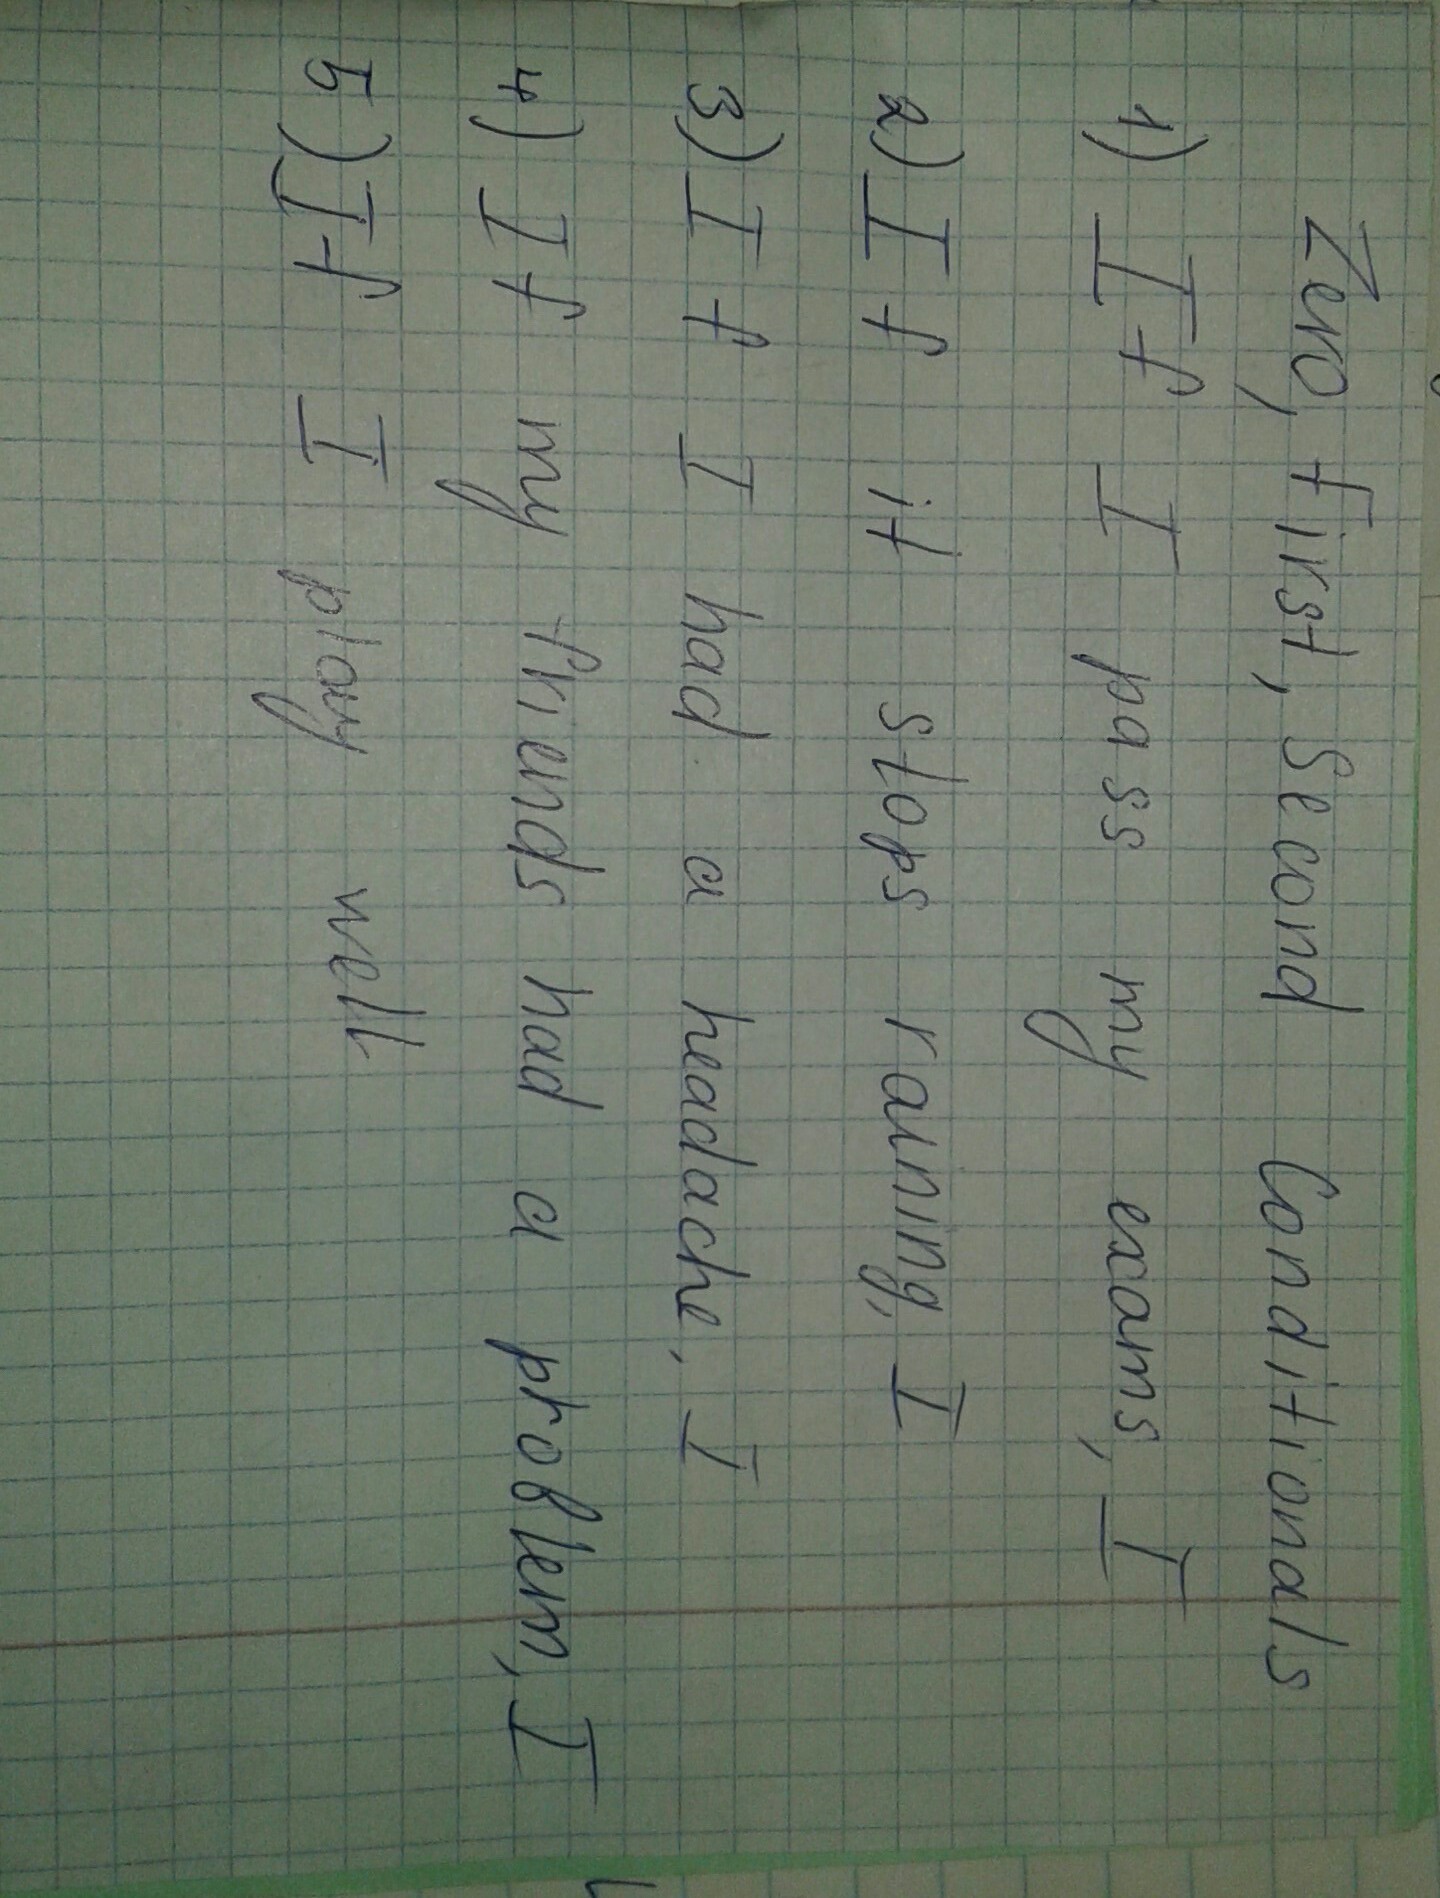 Zero, first, Second Conditionals
1) If I pass my exams, I
2) If it stops raining, I
3) If I had a headache, I
4) If my friends had a problem, I
5) If I play well